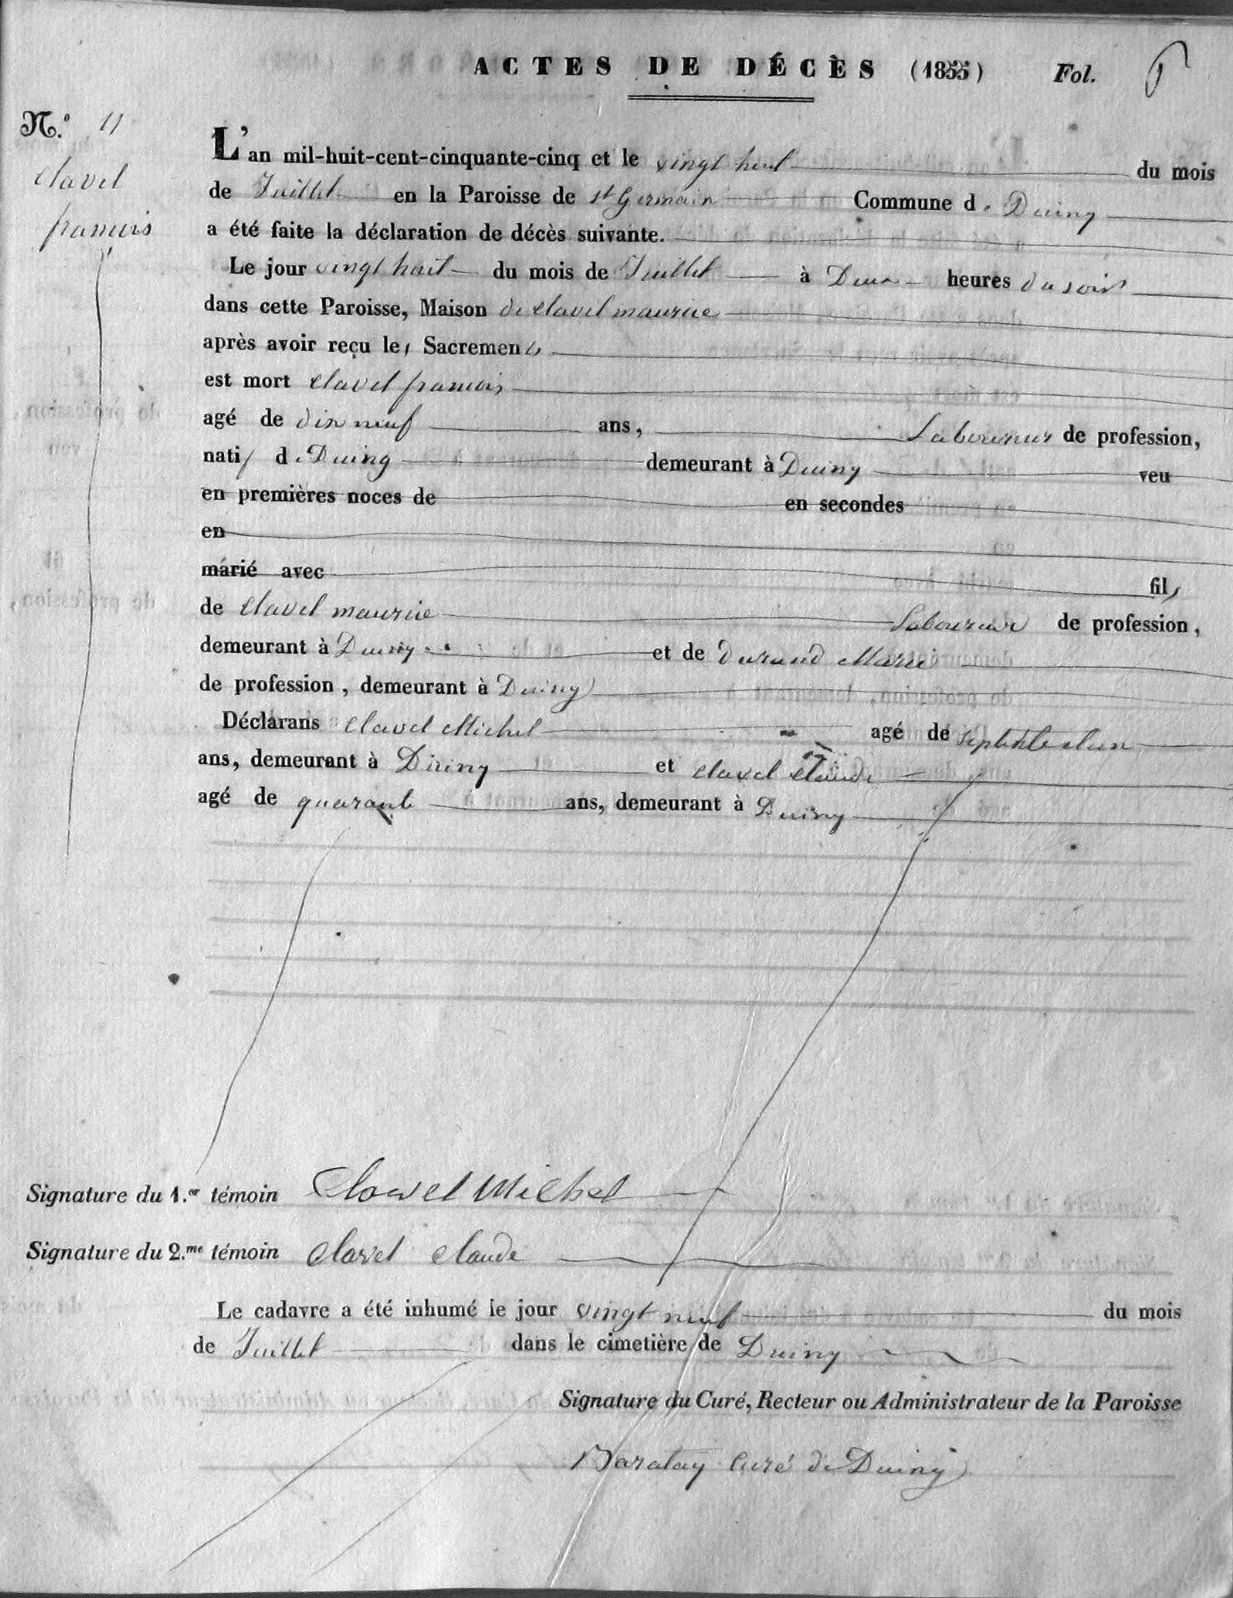 ACTES DE DÉCÈS (1855) Fol.
N.º 11
Clavel
françois
L'an mil-huit-cent-cinquante-cinq et le vingt neuf du mois
de Juillet en la Paroisse de St Germain Commune d. Duing
a été faite la déclaration de décès suivante.
Le jour vingt huit du mois de Juillet à Deux heures du soir
dans cette Paroisse, Maison de Clavel maurice
après avoir reçu les Sacrements
est mort Clavel françois
agé de dix neuf ans, Laboureur de profession,
natif de Duing demeurant à Duing veu
en premières noces de en secondes
en
marié avec fils
de Clavel maurice Laboureur de profession,
demeurant à Duing et de Durand Marie
de profession, demeurant à Duing
Déclarans Clavel Michel agé de
ans, demeurant à Duing et Clavel Claude
agé de quarante ans, demeurant à Duing
Signature du 1.er témoin Clavel Michel
Signature du 2.me témoin Clavel Claude
Le cadavre a été inhumé le jour vingt neuf du mois
de Juillet dans le cimetière de Duing
Signature du Curé, Recteur ou Administrateur de la Paroisse
Baratay Curé de Duing